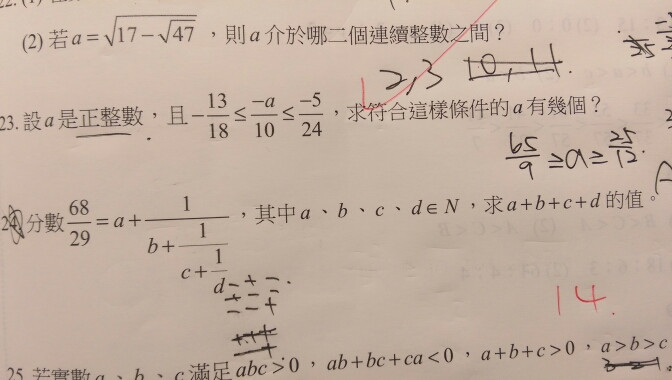 (2) 若 a = √(17 − √47) ，則 a 介於哪二個連續整數之間？
2,3 10,11.
23. 設 a 是正整數，且 −13/18 ≤ −a/10 ≤ −5/24，求符合這樣條件的 a 有幾個？
65/9 ≥ a ≥ 25/12.
24. 分數 68/29 = a + 1/(b + 1/(c + 1/d))，其中 a、b、c、d ∈ N，求 a+b+c+d 的值。
14.
25. 若實數 a、b、c 滿足 abc > 0，ab+bc+ca < 0，a+b+c > 0，a>b>c